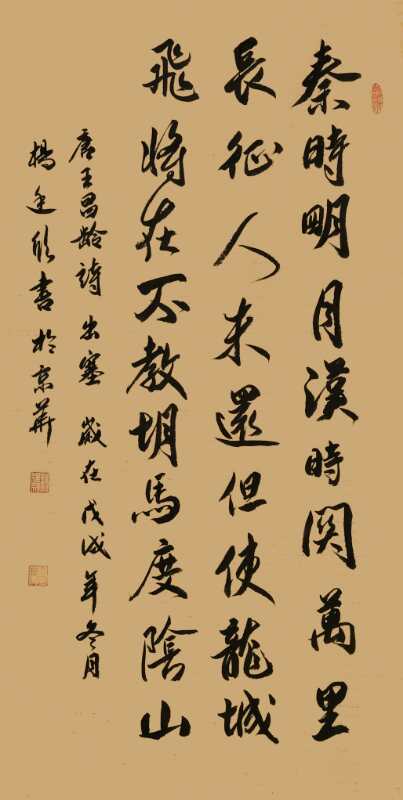 秦時明月漢時関萬里
長征人未還但使龍城
飛將在不教胡馬度陰山
唐王昌龄詩出塞 歲在戊戌年冬月
楊欣書於京華